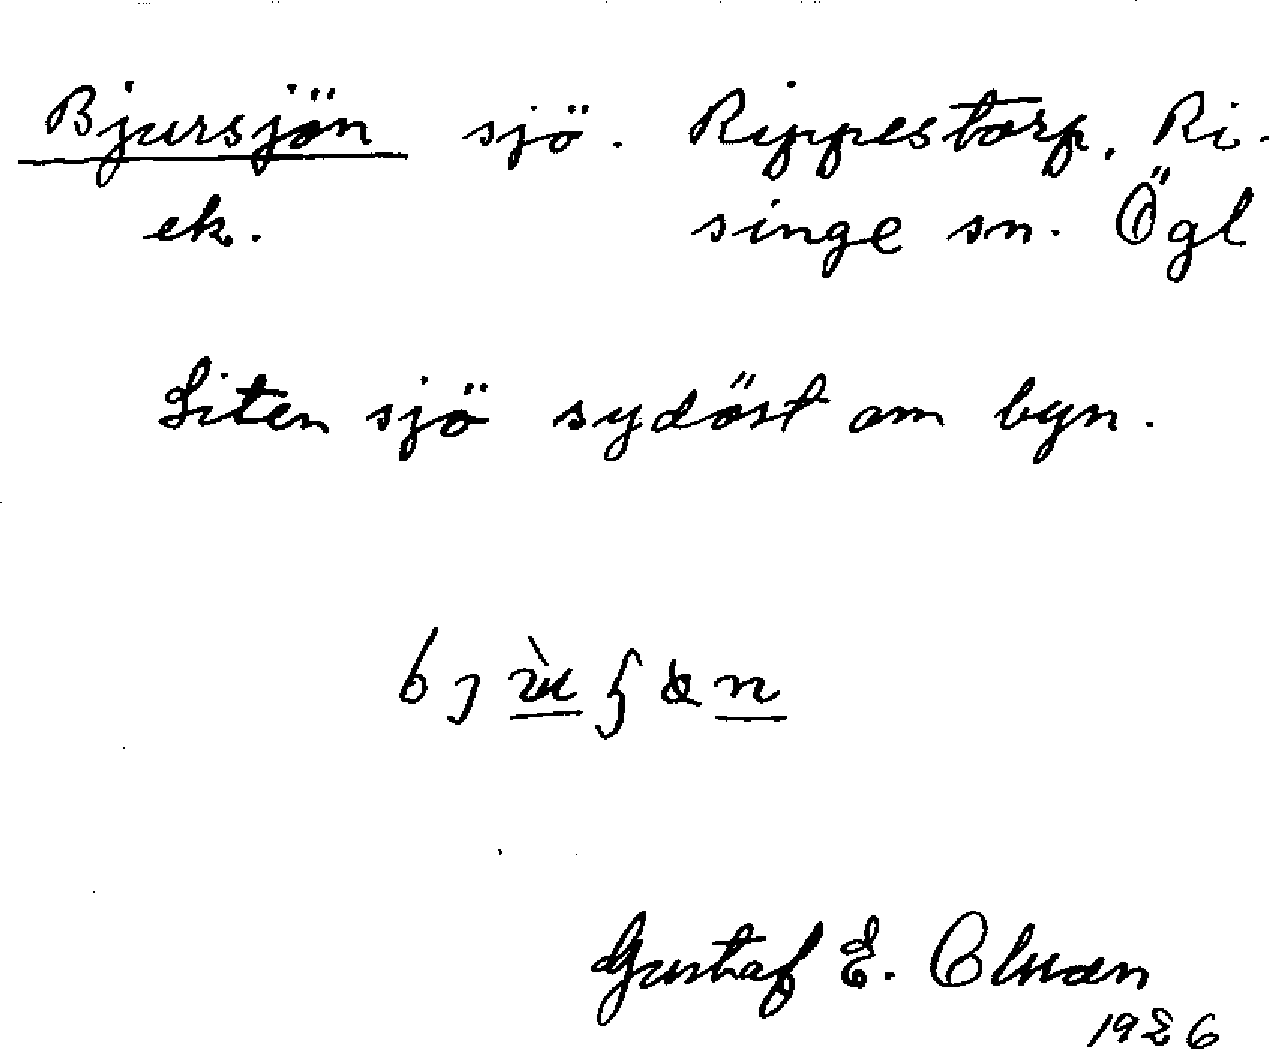 Bjursjön sjö. Rippestorp, Ri-
ek. singe sn. Ögl
Liten sjö sydöst om byn.
Gustaf E.
1926